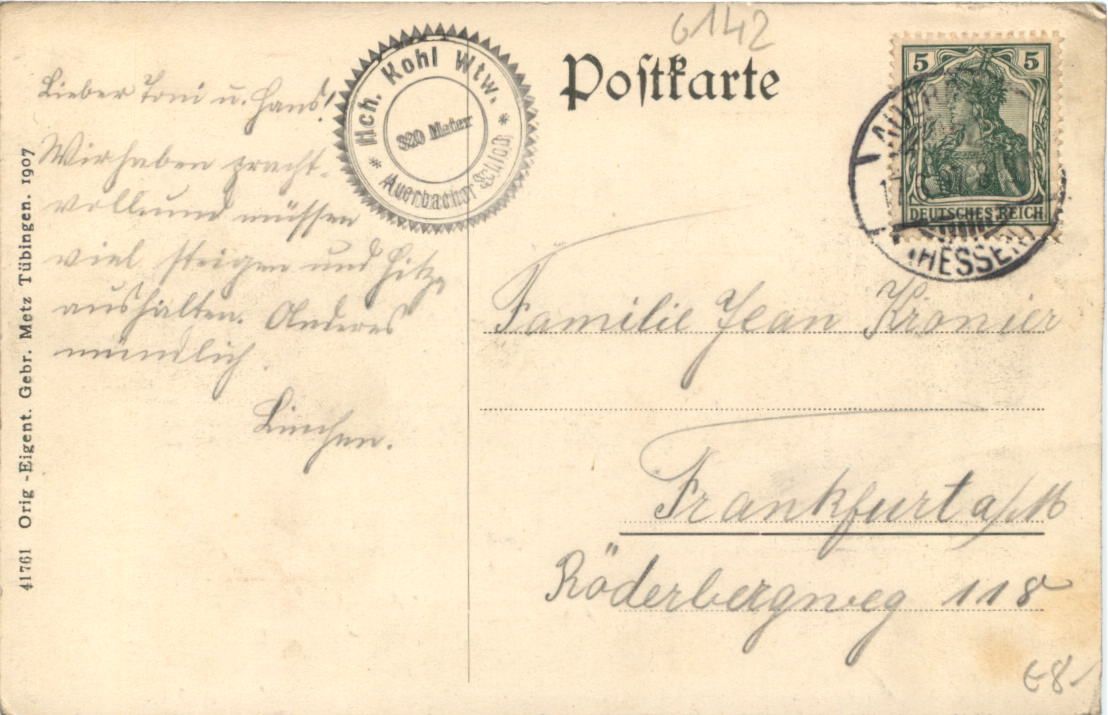 6142
Postkarte
Hch. Kohl Wtw.
320 Meter
* Auerbacher Schloß *
5 5
DEUTSCHES REICH
AUERB
(HESSEN)
Lieber Toni u. Hans!
Wir haben pracht-
voll und müssen
viel steigen und Hitze
aushalten. Anderes
mündlich.
Linchen.
Familie Jean Kronier
Frankfurt a/M
Röderbergweg 118
41761 Orig-Eigent. Gebr. Metz Tübingen. 1907
€8-